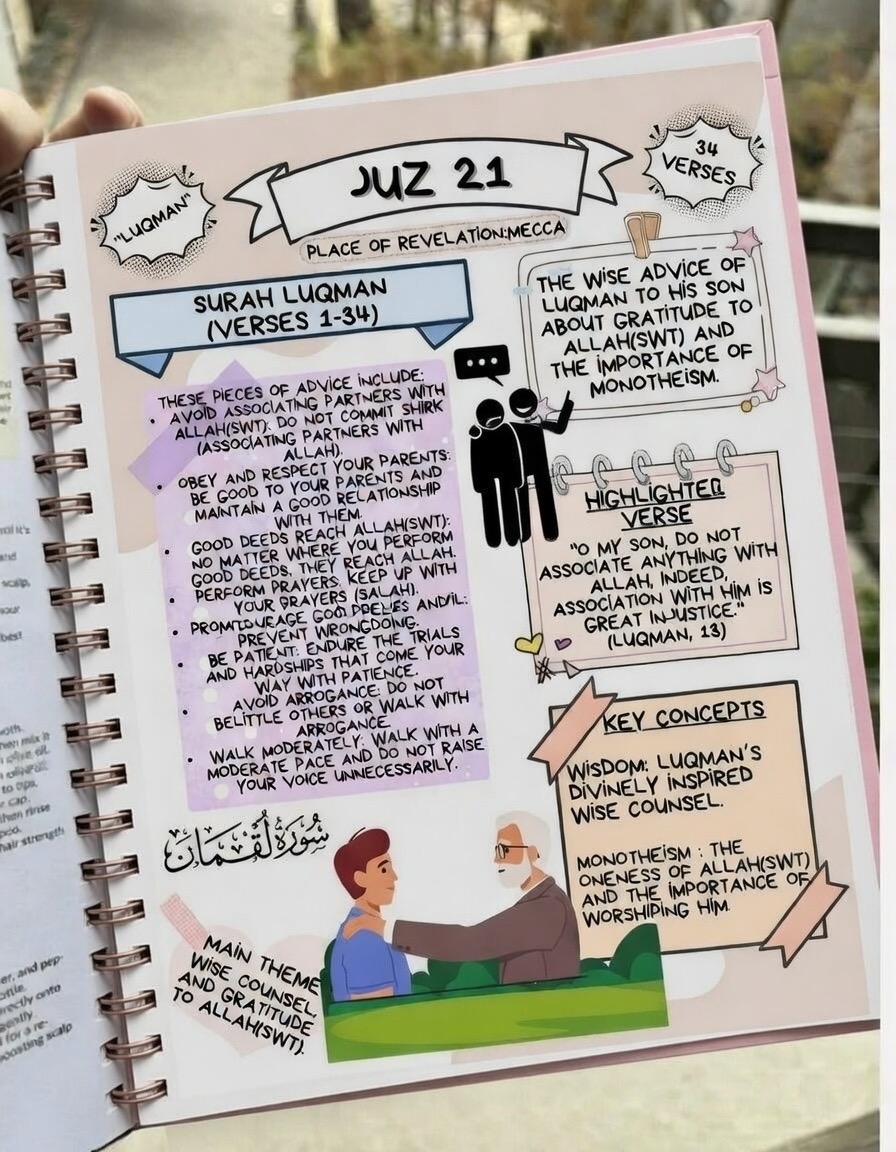 "LUQMAN"
JUZ 21
34
VERSES
PLACE OF REVELATION:MECCA
SURAH LUQMAN
(VERSES 1-34)
THESE PIECES OF ADVICE INCLUDE:
• AVOID ASSOCIATING PARTNERS WITH
ALLAH(SWT): DO NOT COMMIT SHIRK
(ASSOCIATING PARTNERS WITH
ALLAH).
• OBEY AND RESPECT YOUR PARENTS:
BE GOOD TO YOUR PARENTS AND
MAINTAIN A GOOD RELATIONSHIP
WITH THEM.
• GOOD DEEDS REACH ALLAH(SWT):
NO MATTER WHERE YOU PERFORM
GOOD DEEDS, THEY REACH ALLAH.
• PERFORM PRAYERS: KEEP UP WITH
YOUR PRAYERS (SALAH).
•
PREVENT WRONGDOING.
• BE PATIENT: ENDURE THE TRIALS
AND HARDSHIPS THAT COME YOUR
WAY WITH PATIENCE.
• AVOID ARROGANCE: DO NOT
BELITTLE OTHERS OR WALK WITH
ARROGANCE.
• WALK MODERATELY: WALK WITH A
MODERATE PACE AND DO NOT RAISE
YOUR VOICE UNNECESSARILY.
THE WISE ADVICE OF
LUQMAN TO HIS SON
ABOUT GRATITUDE TO
ALLAH(SWT) AND
THE IMPORTANCE OF
MONOTHEISM.
HIGHLIGHTED
VERSE
"O MY SON, DO NOT
ASSOCIATE ANYTHING WITH
ALLAH, INDEED,
ASSOCIATION WITH HIM IS
GREAT INJUSTICE."
(LUQMAN, 13)
KEY CONCEPTS
WISDOM: LUQMAN'S
DIVINELY INSPIRED
WISE COUNSEL.
MONOTHEISM : THE
ONENESS OF ALLAH(SWT)
AND THE IMPORTANCE OF
WORSHIPING HIM.
سُورَةُ لُقْمَان
MAIN THEME
WISE COUNSEL,
AND GRATITUDE
TO ALLAH(SWT).
and
scalp,
your
best
then mix it
olive oil.
to tips,
cap.
then rinse
hair strength
er, and pep-
directly onto
gently
for a re-
boosting scalp